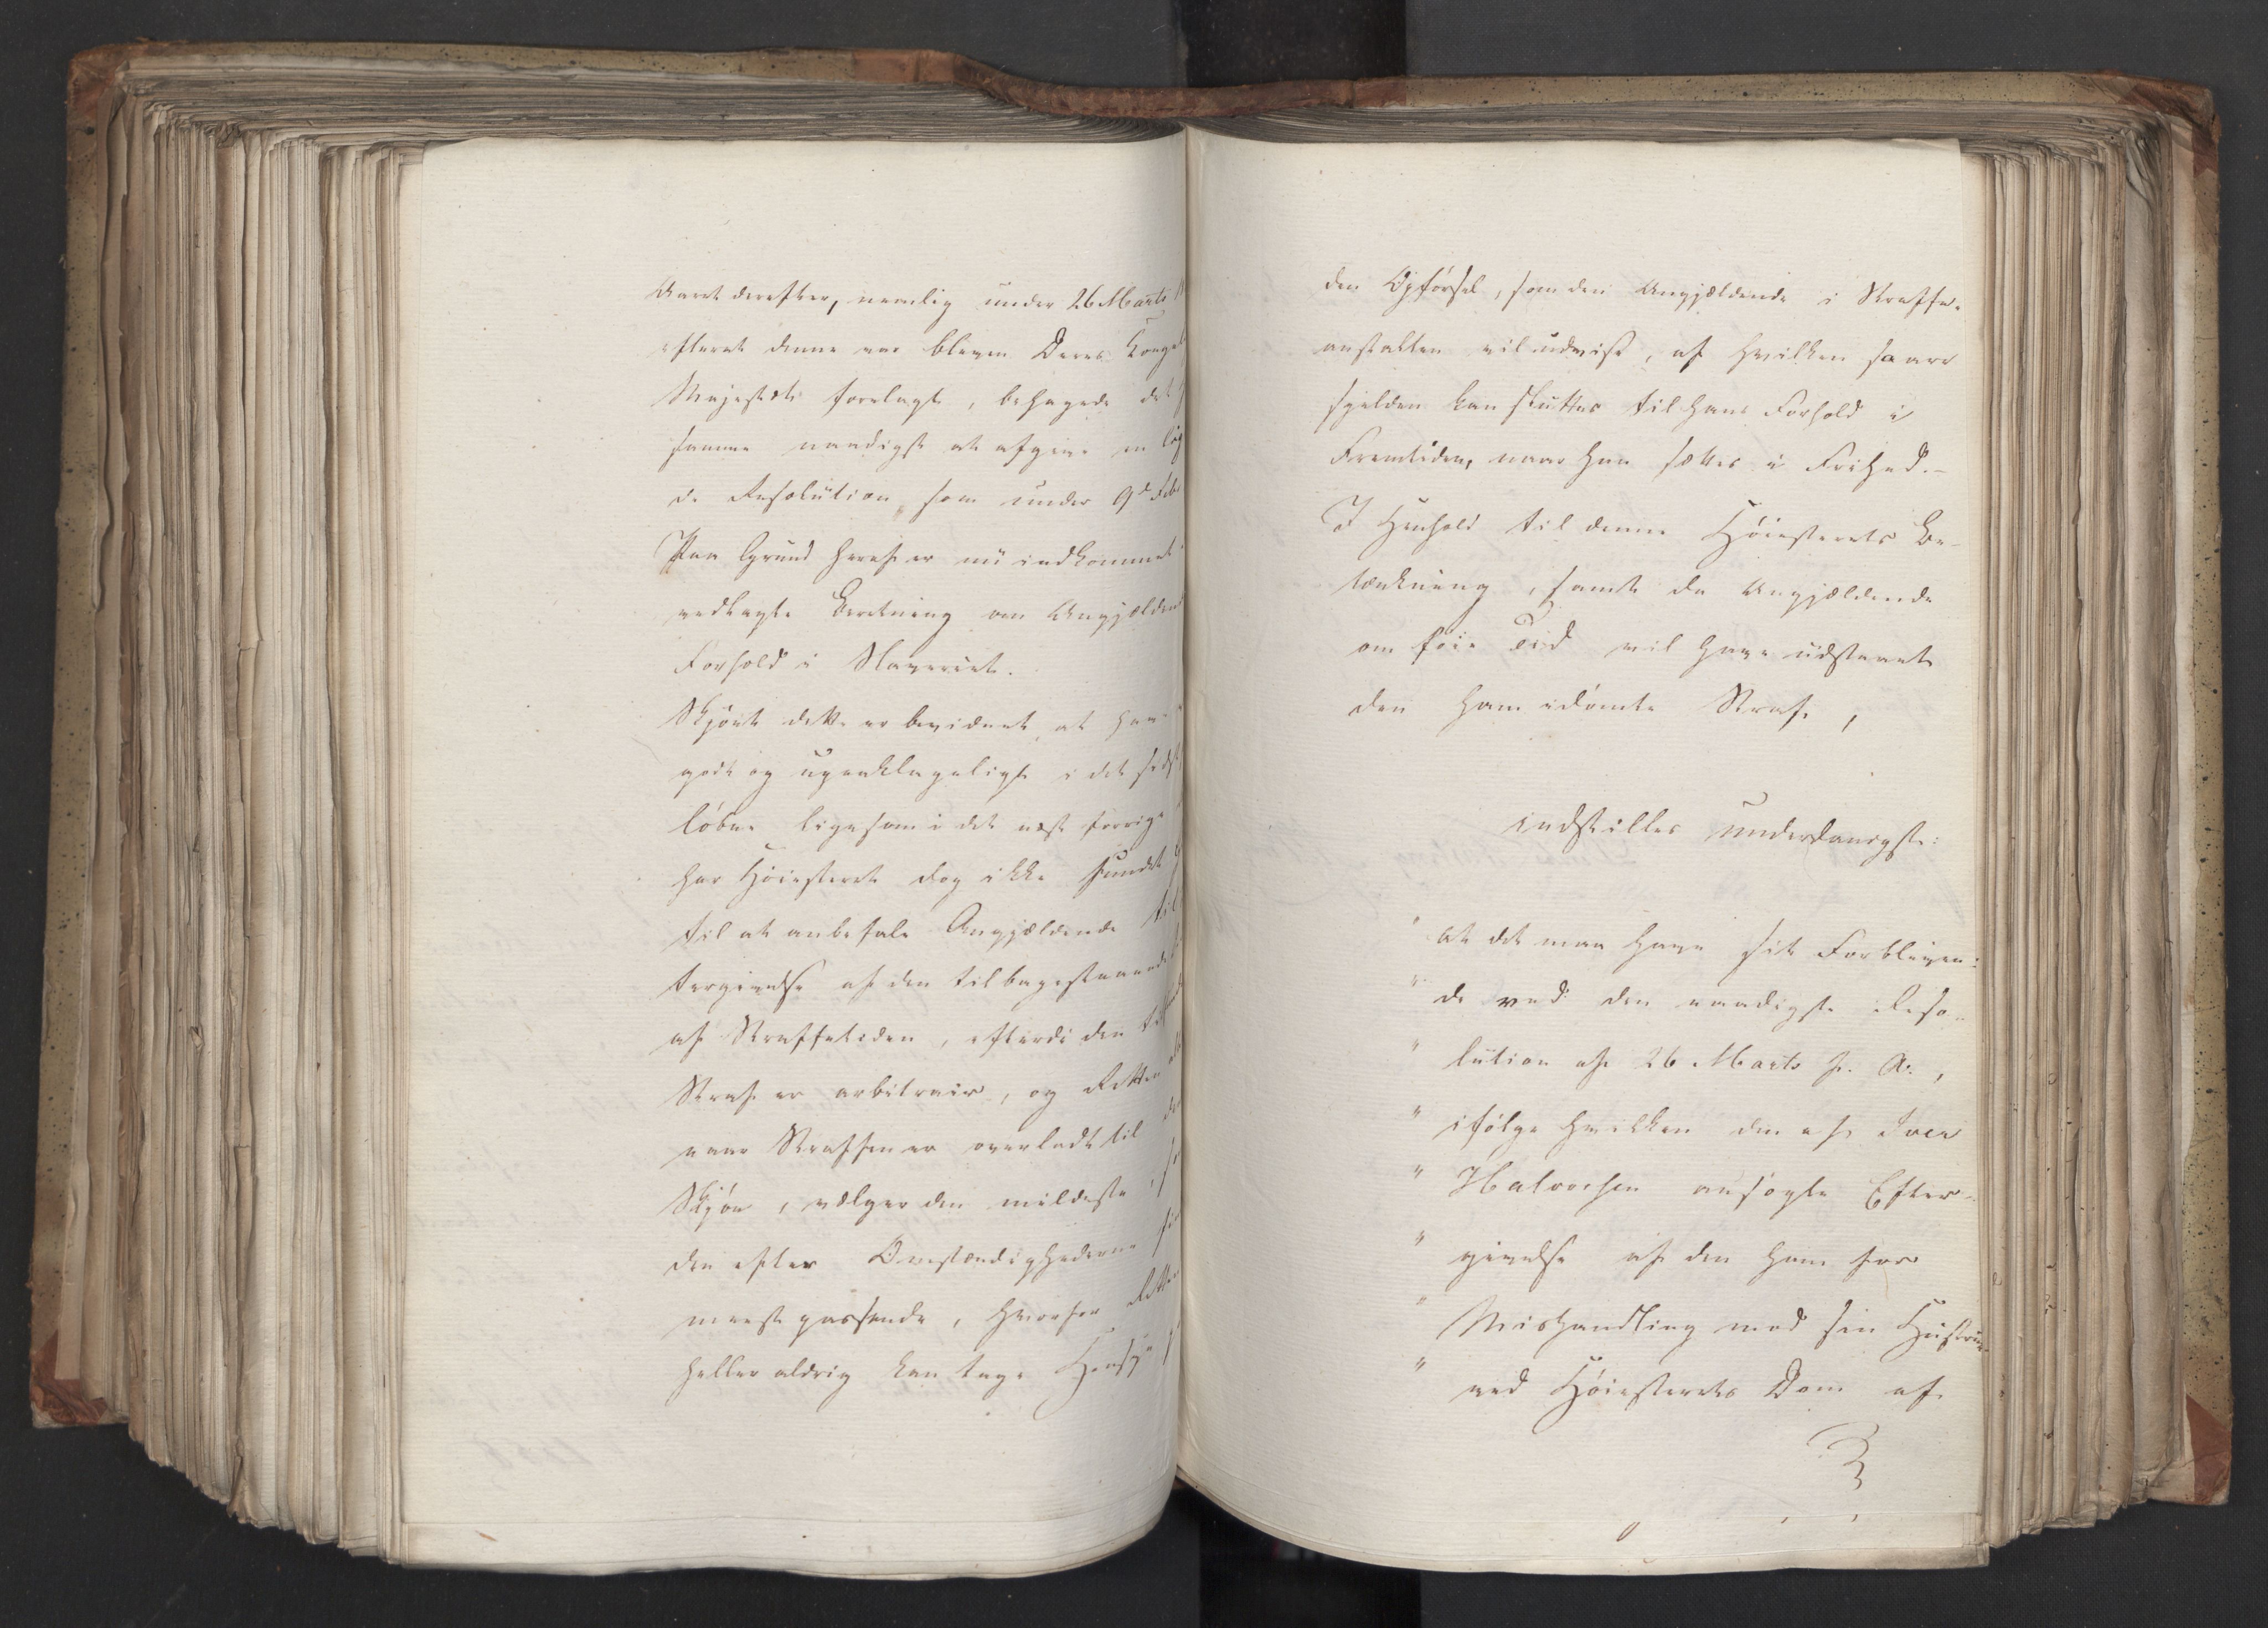 Aaret derefter, nemlig under 26 Marts
efterat denne var bleven Deres Kongel
Majestæt forelagt, behagede det
samme naadigst at afgive en lig
de Resolution som under 9d Feb
Paa Grund heraf er nu indkommet
vedlagte Beretning om Angjælden
Forhold i Slaveriet.
Skjönt dette er bevidnet, at have
godt og upaaklageligt i det sidst
löbne ligesom i det næst forrige
har Höiesteret dog ikke fundet
til at anbefale Angjældende til
tergivelse af den tilbagestaaende
af Straffetiden, efterdi den
Straf er arbitrair, og Retten
naar Straffen er overladt til
Skjön, vælger den mildeste,
den efter Omstændighederne
meest passende, hvorfor Retten
heller aldrig kan tage Hensyn
den Opförsel, som den Angjældende i Straffe-
anstalten vil udvise, af hvilken saare
sjelden kan sluttes til hans Forhold i
Fremtiden, naar han sættes i Frihed.-
I Henhold til denne Höiesterets Be-
tænkning, samt da Angjældende
om föie Tid vil have udstaaet
den ham idömte Straf,
indstilles underdanigst:
" at det maa have sit Forbliven:
" de ved den naadigste Reso-
" lution af 26 Marts f. A.,
" ifölge hvilken den af Iver
" Halvorsen ansögte Efter-
" givelse af den ham for
" Mishandling mod sin Hustrue
" ved Höiesterets Dom af